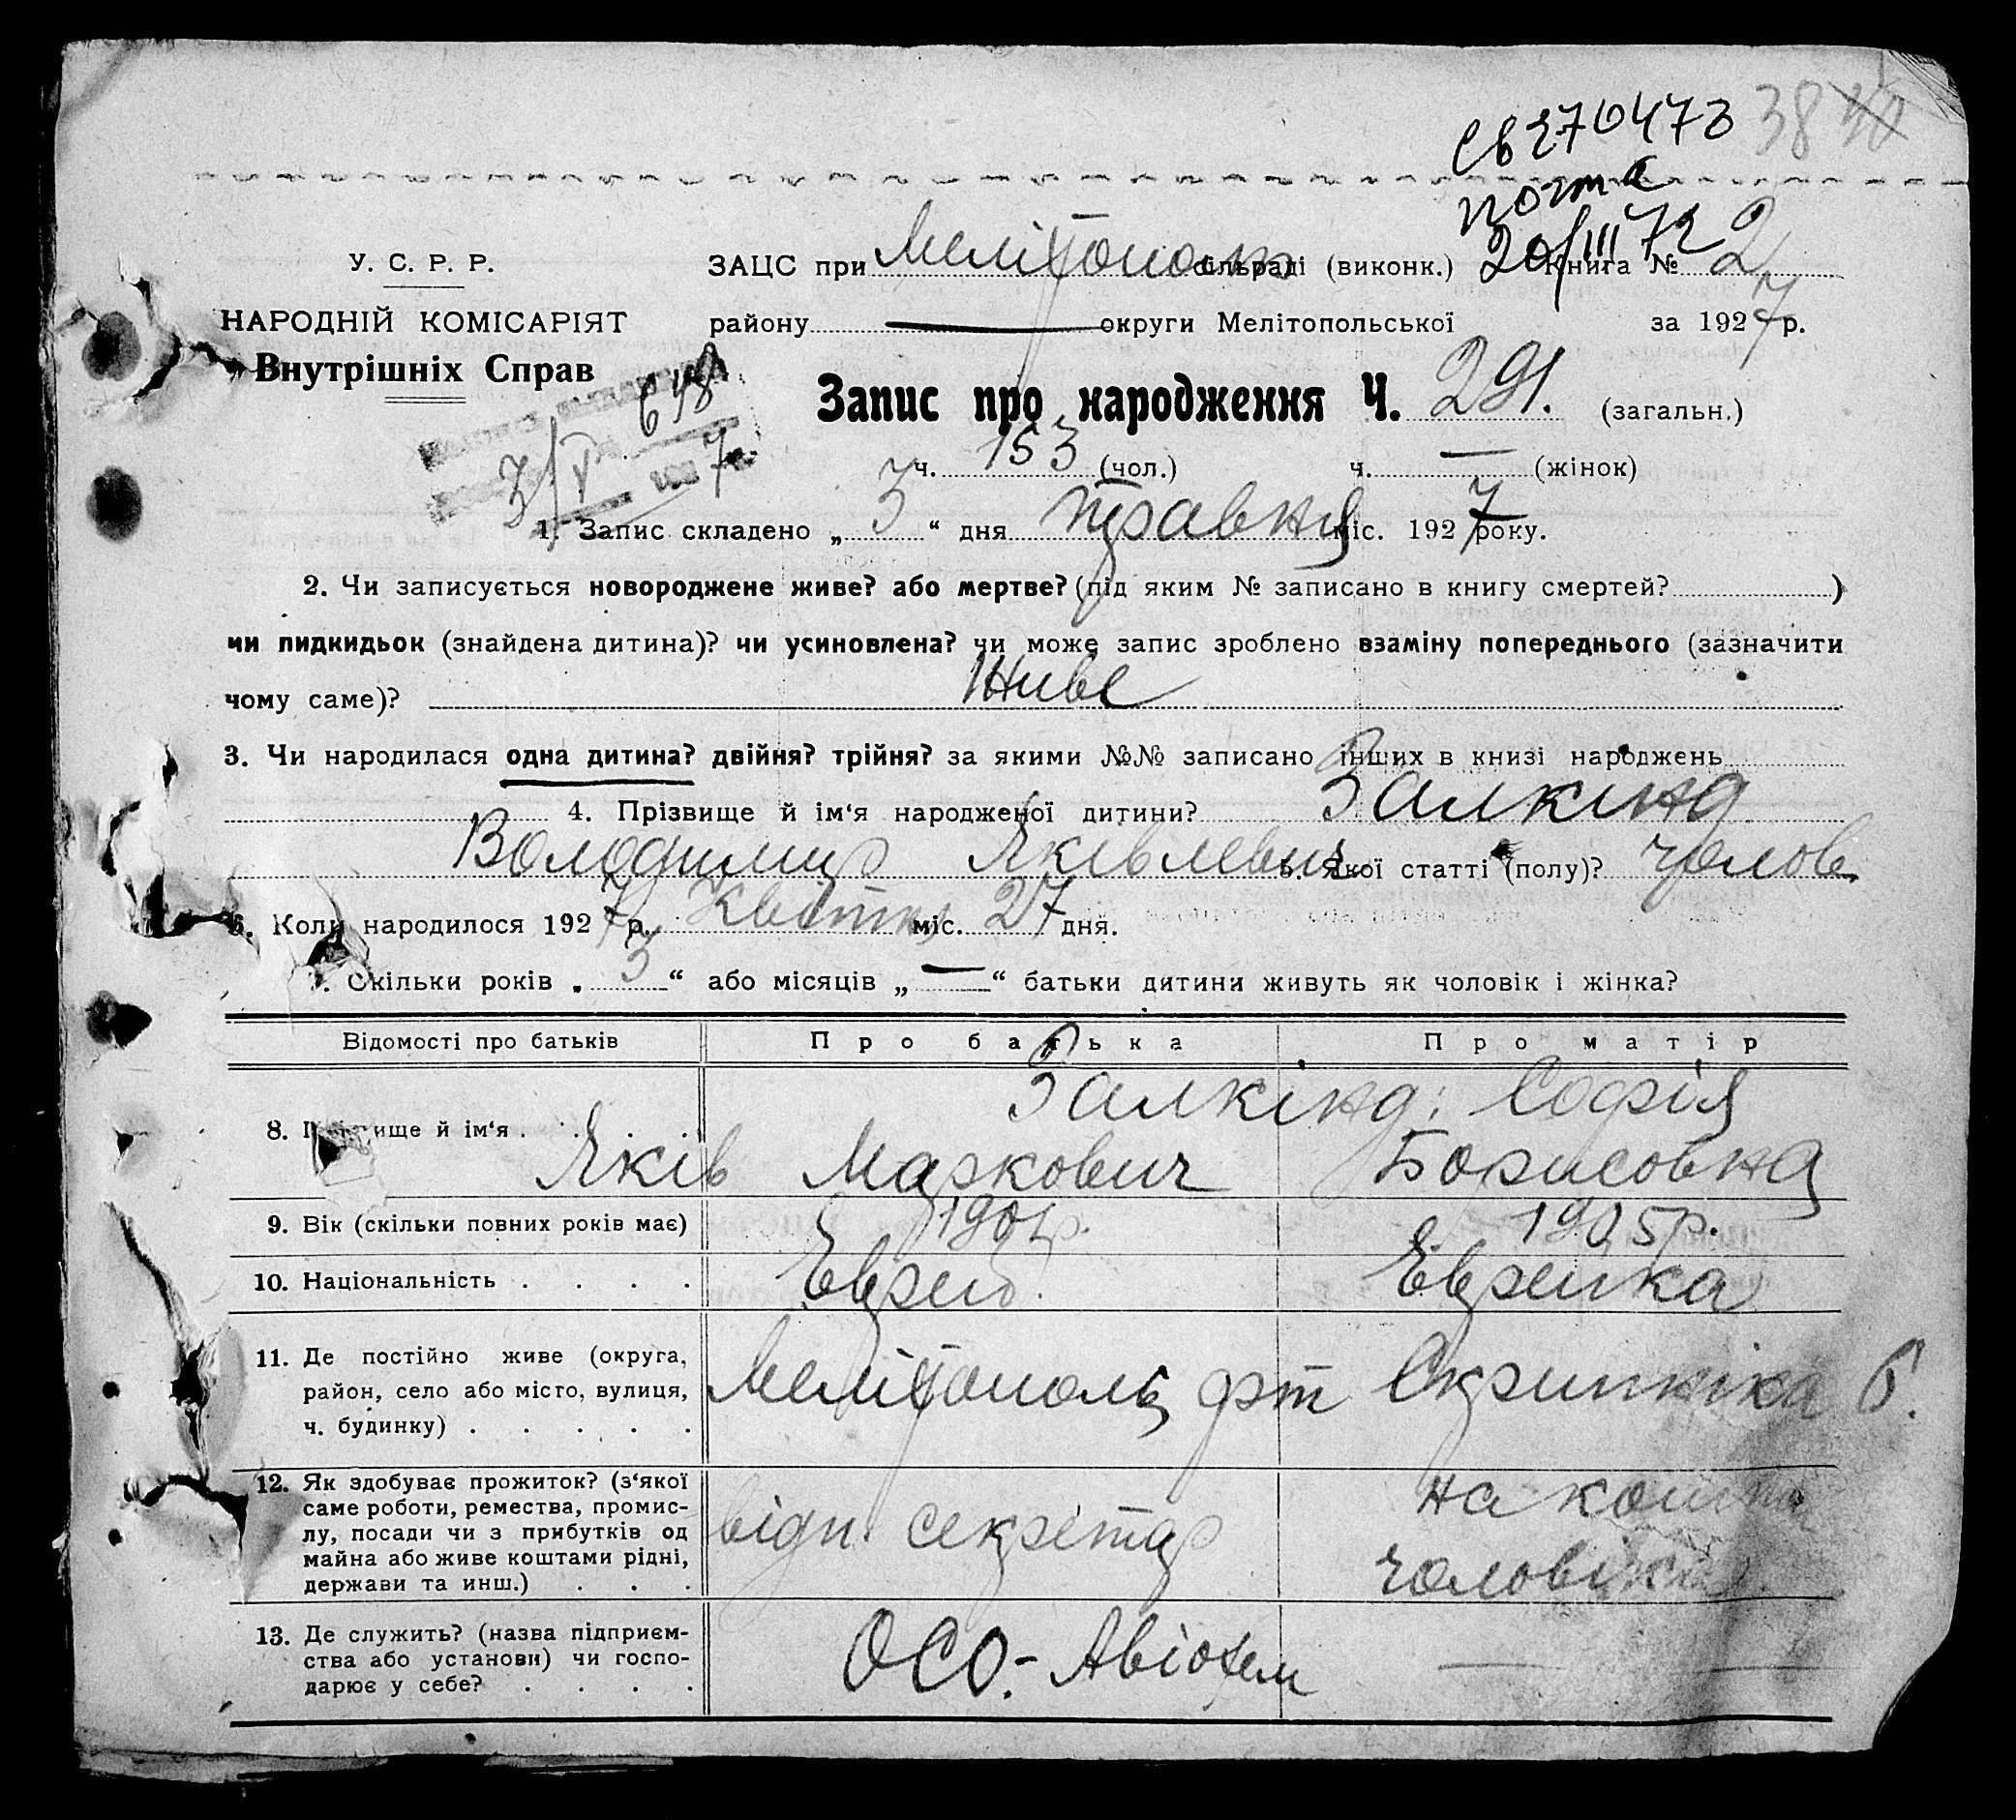 св 270473 38
почта
20/III 72
У. С. Р. Р.
ЗАЦС при Мелітополь сільраді (виконк.) Книга № 2
НАРОДНІЙ КОМІСАРІЯТ
району — округи Мелітопольської за 1927 р.
Внутрішніх Справ
648
Запис про народження Ч. 291. (загальн.)
3/V 1927
ч. 153 (чол.) ч. — (жінок)
1. Запис складено „ 3 “ дня травня міс. 1927 року.
2. Чи записується новороджене живе? або мертве? (під яким № записано в книгу смертей? )
чи пидкидьок (знайдена дитина)? чи усиновлена? чи може запис зроблено взаміну попереднього (зазначити
чому саме)? Живе
3. Чи народилася одна дитина? двійня? трійня? за якими №№ записано інших в книзі народжень
4. Прізвище й ім‘я народженої дитини? Залкинд
Володимир Яківлевич 5. Якої статті (полу)? Чолов.
6. Коли народилося 1927 р. Квітня міс. 27 дня.
7. Скільки років „ 3 “ або місяців „ — “ батьки дитини живуть як чоловік і жінка?
Відомості про батьків Про батька Про матір
8. Прізвище й ім‘я . . . . Залкінд: Софія
Яків Маркович Борисовна
9. Вік (скільки повних років має) 1901р. 1905р.
10. Національність . . . . Еврей. Еврейка
11. Де постійно живе (округа,
район, село або місто, вулиця,
ч. будинку) . . . . . Мелітополь Скрипника 6.
12. Як здобуває прожиток? (з‘якої
саме роботи, ремества, промис-
лу, посади чи з прибутків од
майна або живе коштами рідні,
держави та инш.) . . . відп. секретар на кошти
чоловіка
13. Де служить? (назва підприєм-
ства або установи) чи госпо-
дарює у себе? . . . . ОСО.- Авіохем —